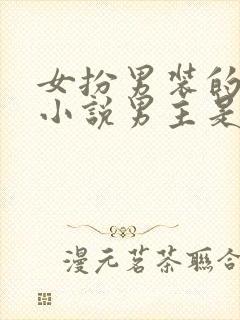 女扮男装的
小說男主是
漫元茗茶聯合